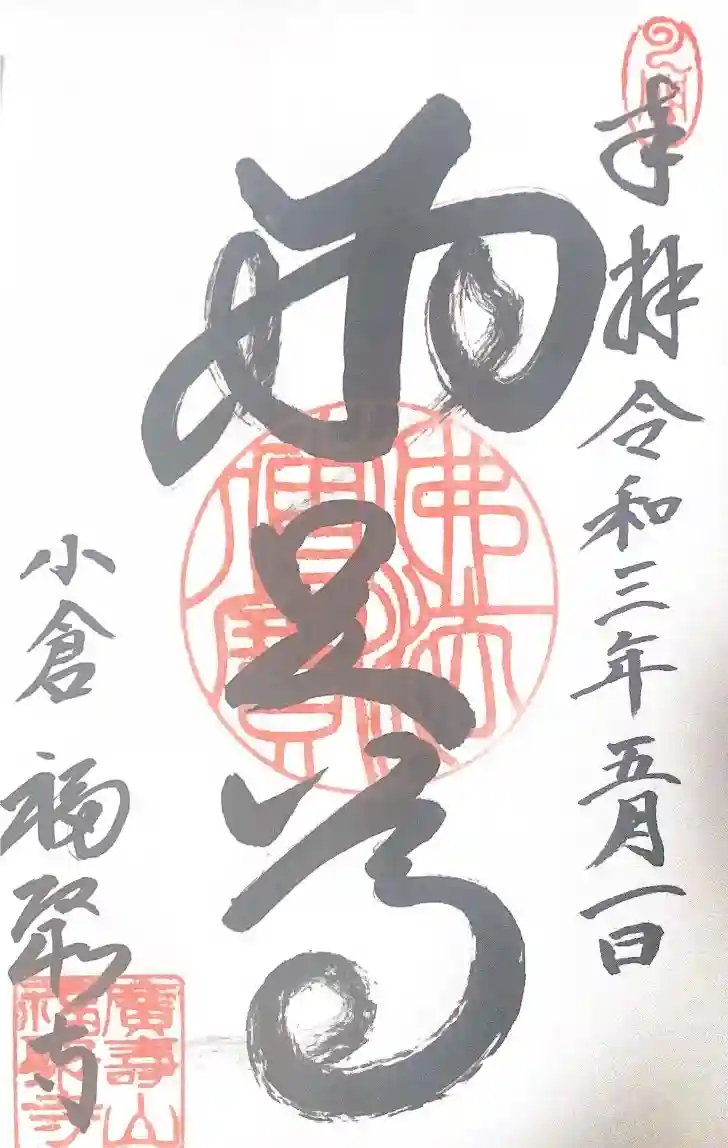 奉拝 令和三年五月一日
両足尊
佛法僧寶
小倉 福聚寺
廣壽山福聚寺